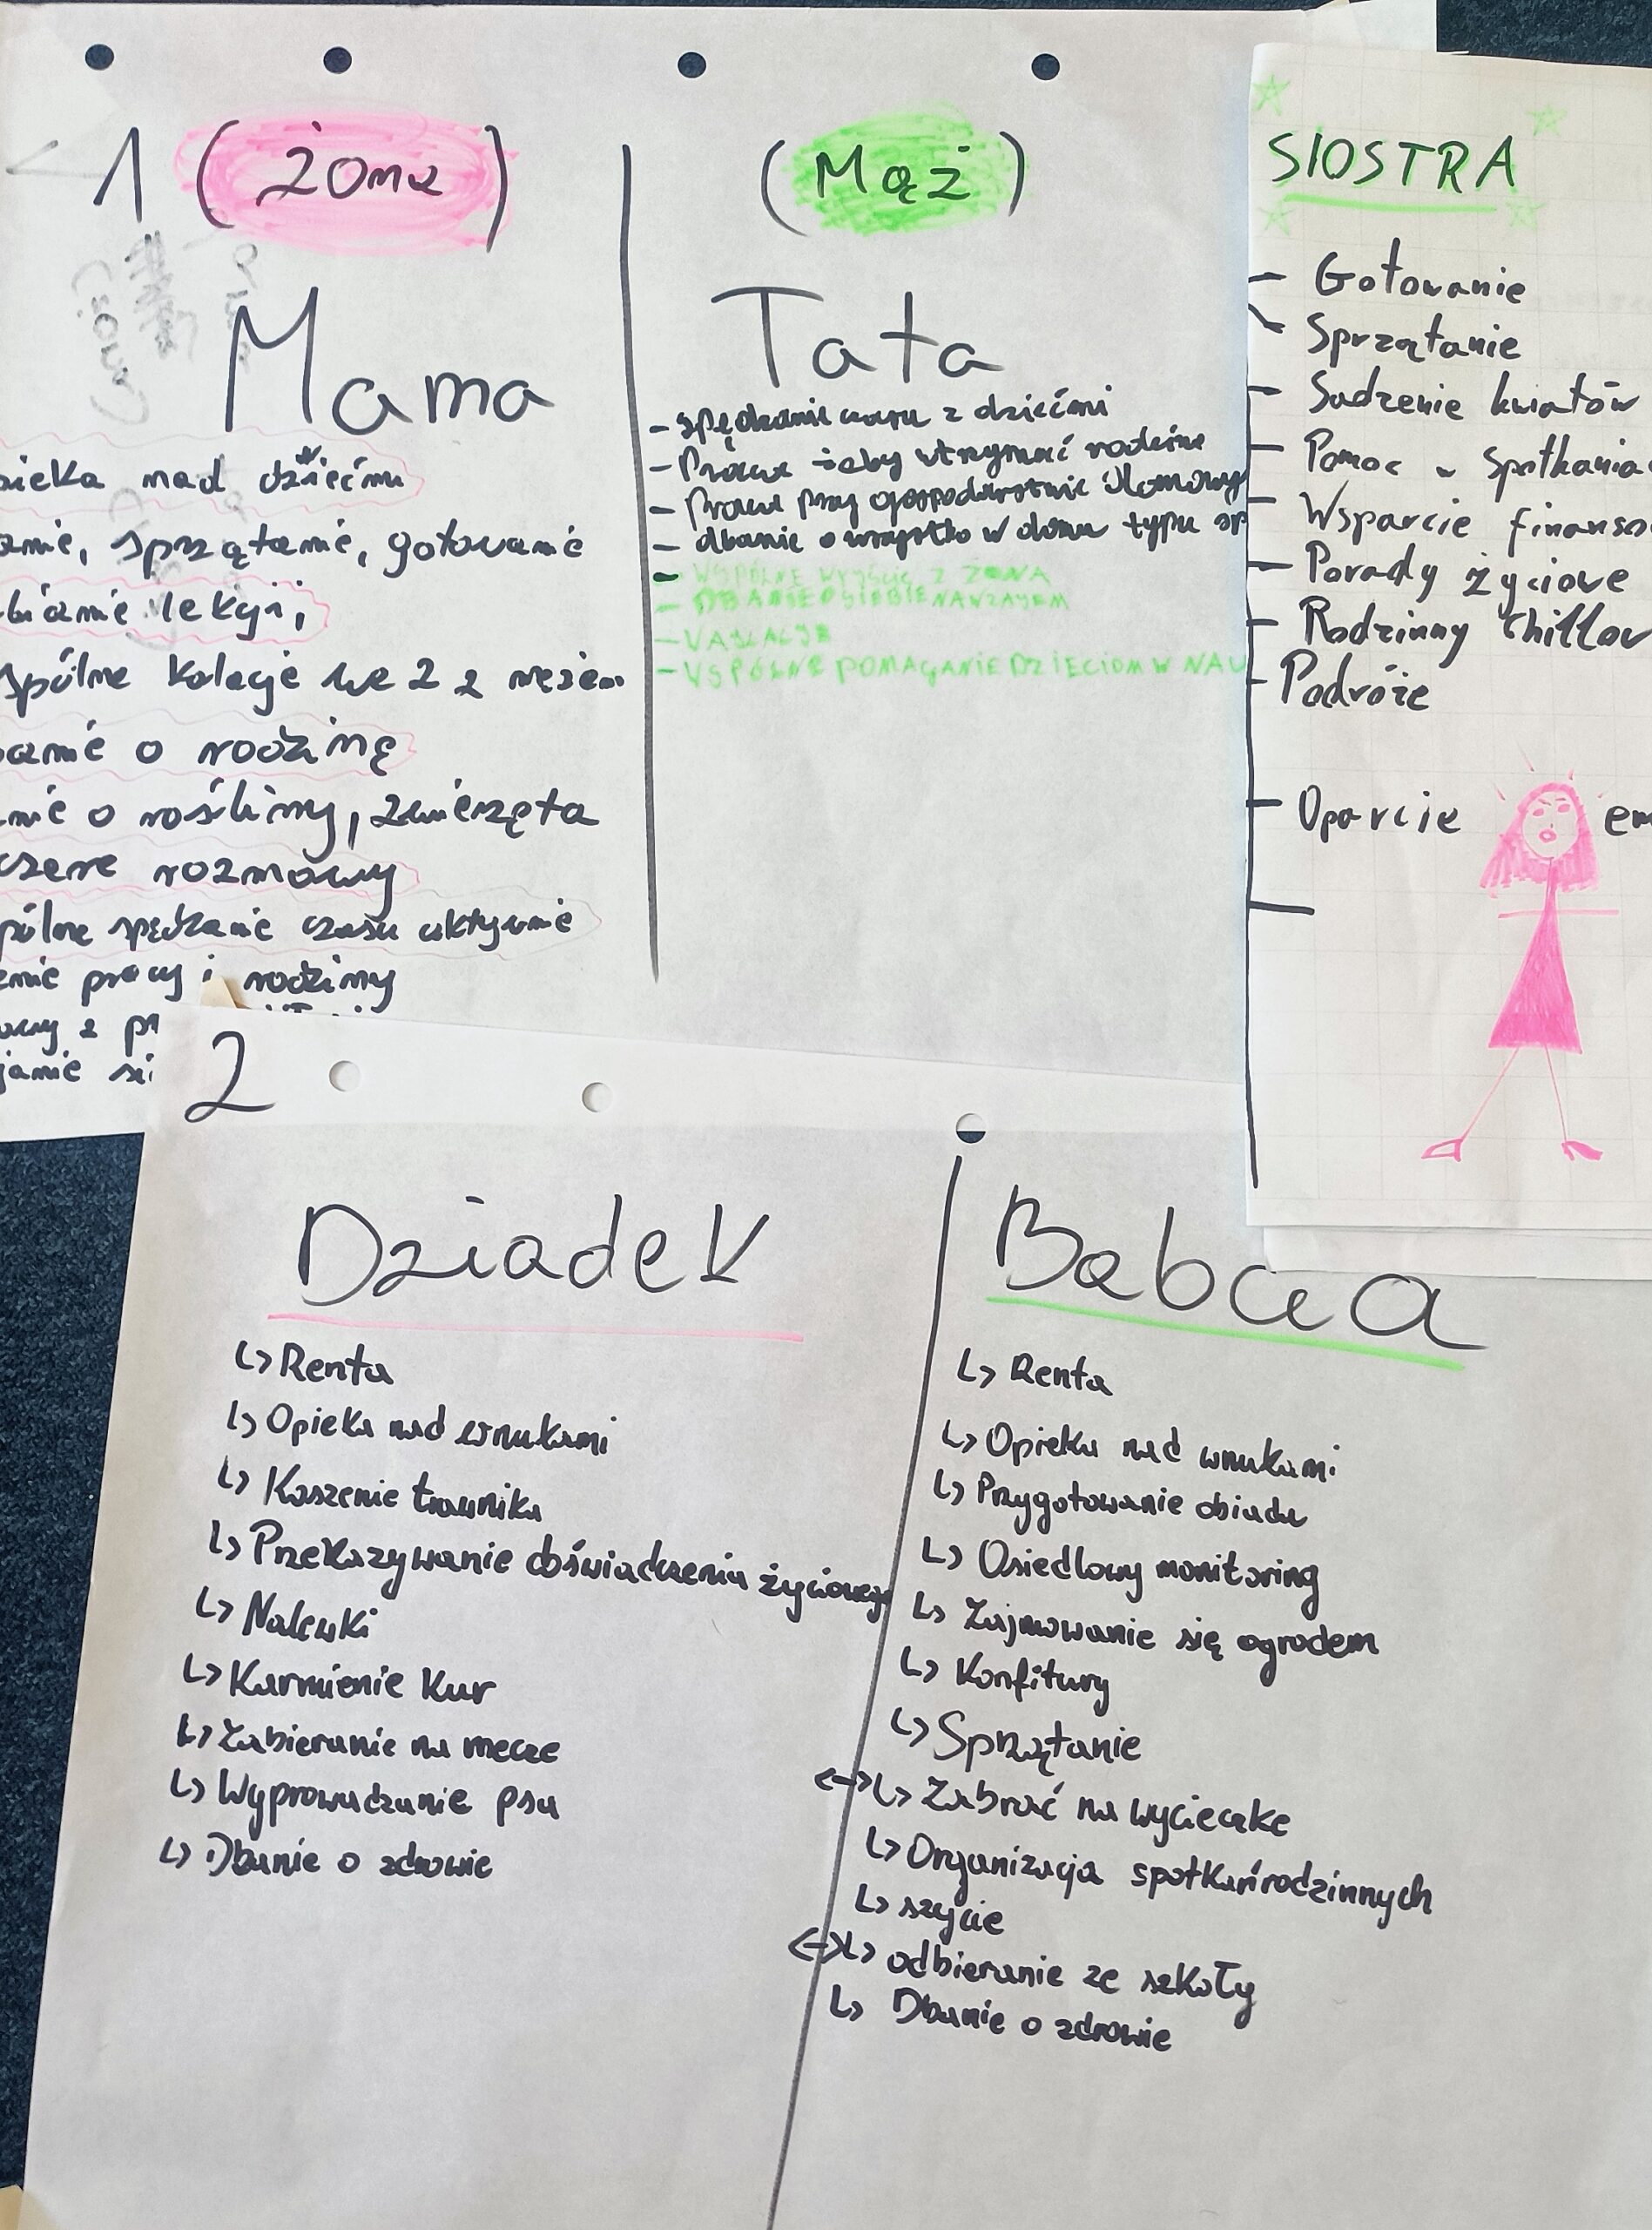 1 (żona)
Mama
opieka nad dziećmi
anie, sprzątanie, gotowanie
bianie lekcji,
spólne kolacje we 2 z mężem
banie o rodzinę
anie o rośliny, zwierzęta
szczere rozmowy
spólne spędzanie czasu aktywnie
enie pracy i rodziny
(Mąż)
Tata
- spędzanie czasu z dziećmi
- Praca żeby utrzymać rodzine
- Praca przy gospodarstwie domowy
- dbanie o wszystko w domu typu sp
- WSPÓLNE WYJŚCIE Z ŻONA
- DBANIE O SIEBIE NAWZAJEM
- WAKACJE
- WSPÓLNE POMAGANIE DZIECIOM W NAU
SIOSTRA
- Gotowanie
- Sprzątanie
- Sadzenie kwiatów
- Pomoc w spotkania
- Wsparcie finanso
- Porady życiowe
- Rodzinny chillou
- Podróże
- Oparcie em
2
Dziadek
↳ Renta
↳ Opieka nad wnukami
↳ Koszenie trawnika
↳ Przekazywanie doświadczenia życiowego
↳ Nalewki
↳ Karmienie kur
↳ Zabieranie na mecze
↳ Wyprowadzanie psa
↳ Dbanie o zdrowie
Babcia
↳ Renta
↳ Opieka nad wnukami
↳ Przygotowanie obiadu
↳ Osiedlowy monitoring
↳ Zajmowanie się ogrodem
↳ Konfitury
↳ Sprzątanie
↔ ↳ Zabrać na wycieczke
↳ Organizacja spotkań rodzinnych
↳ szycie
↔ ↳ odbieranie ze szkoły
↳ Dbanie o zdrowie